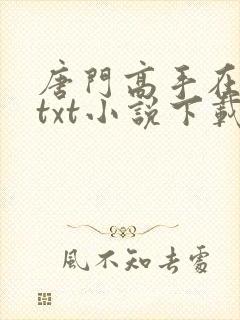 唐門高手在
txt小說下載
風不知去處